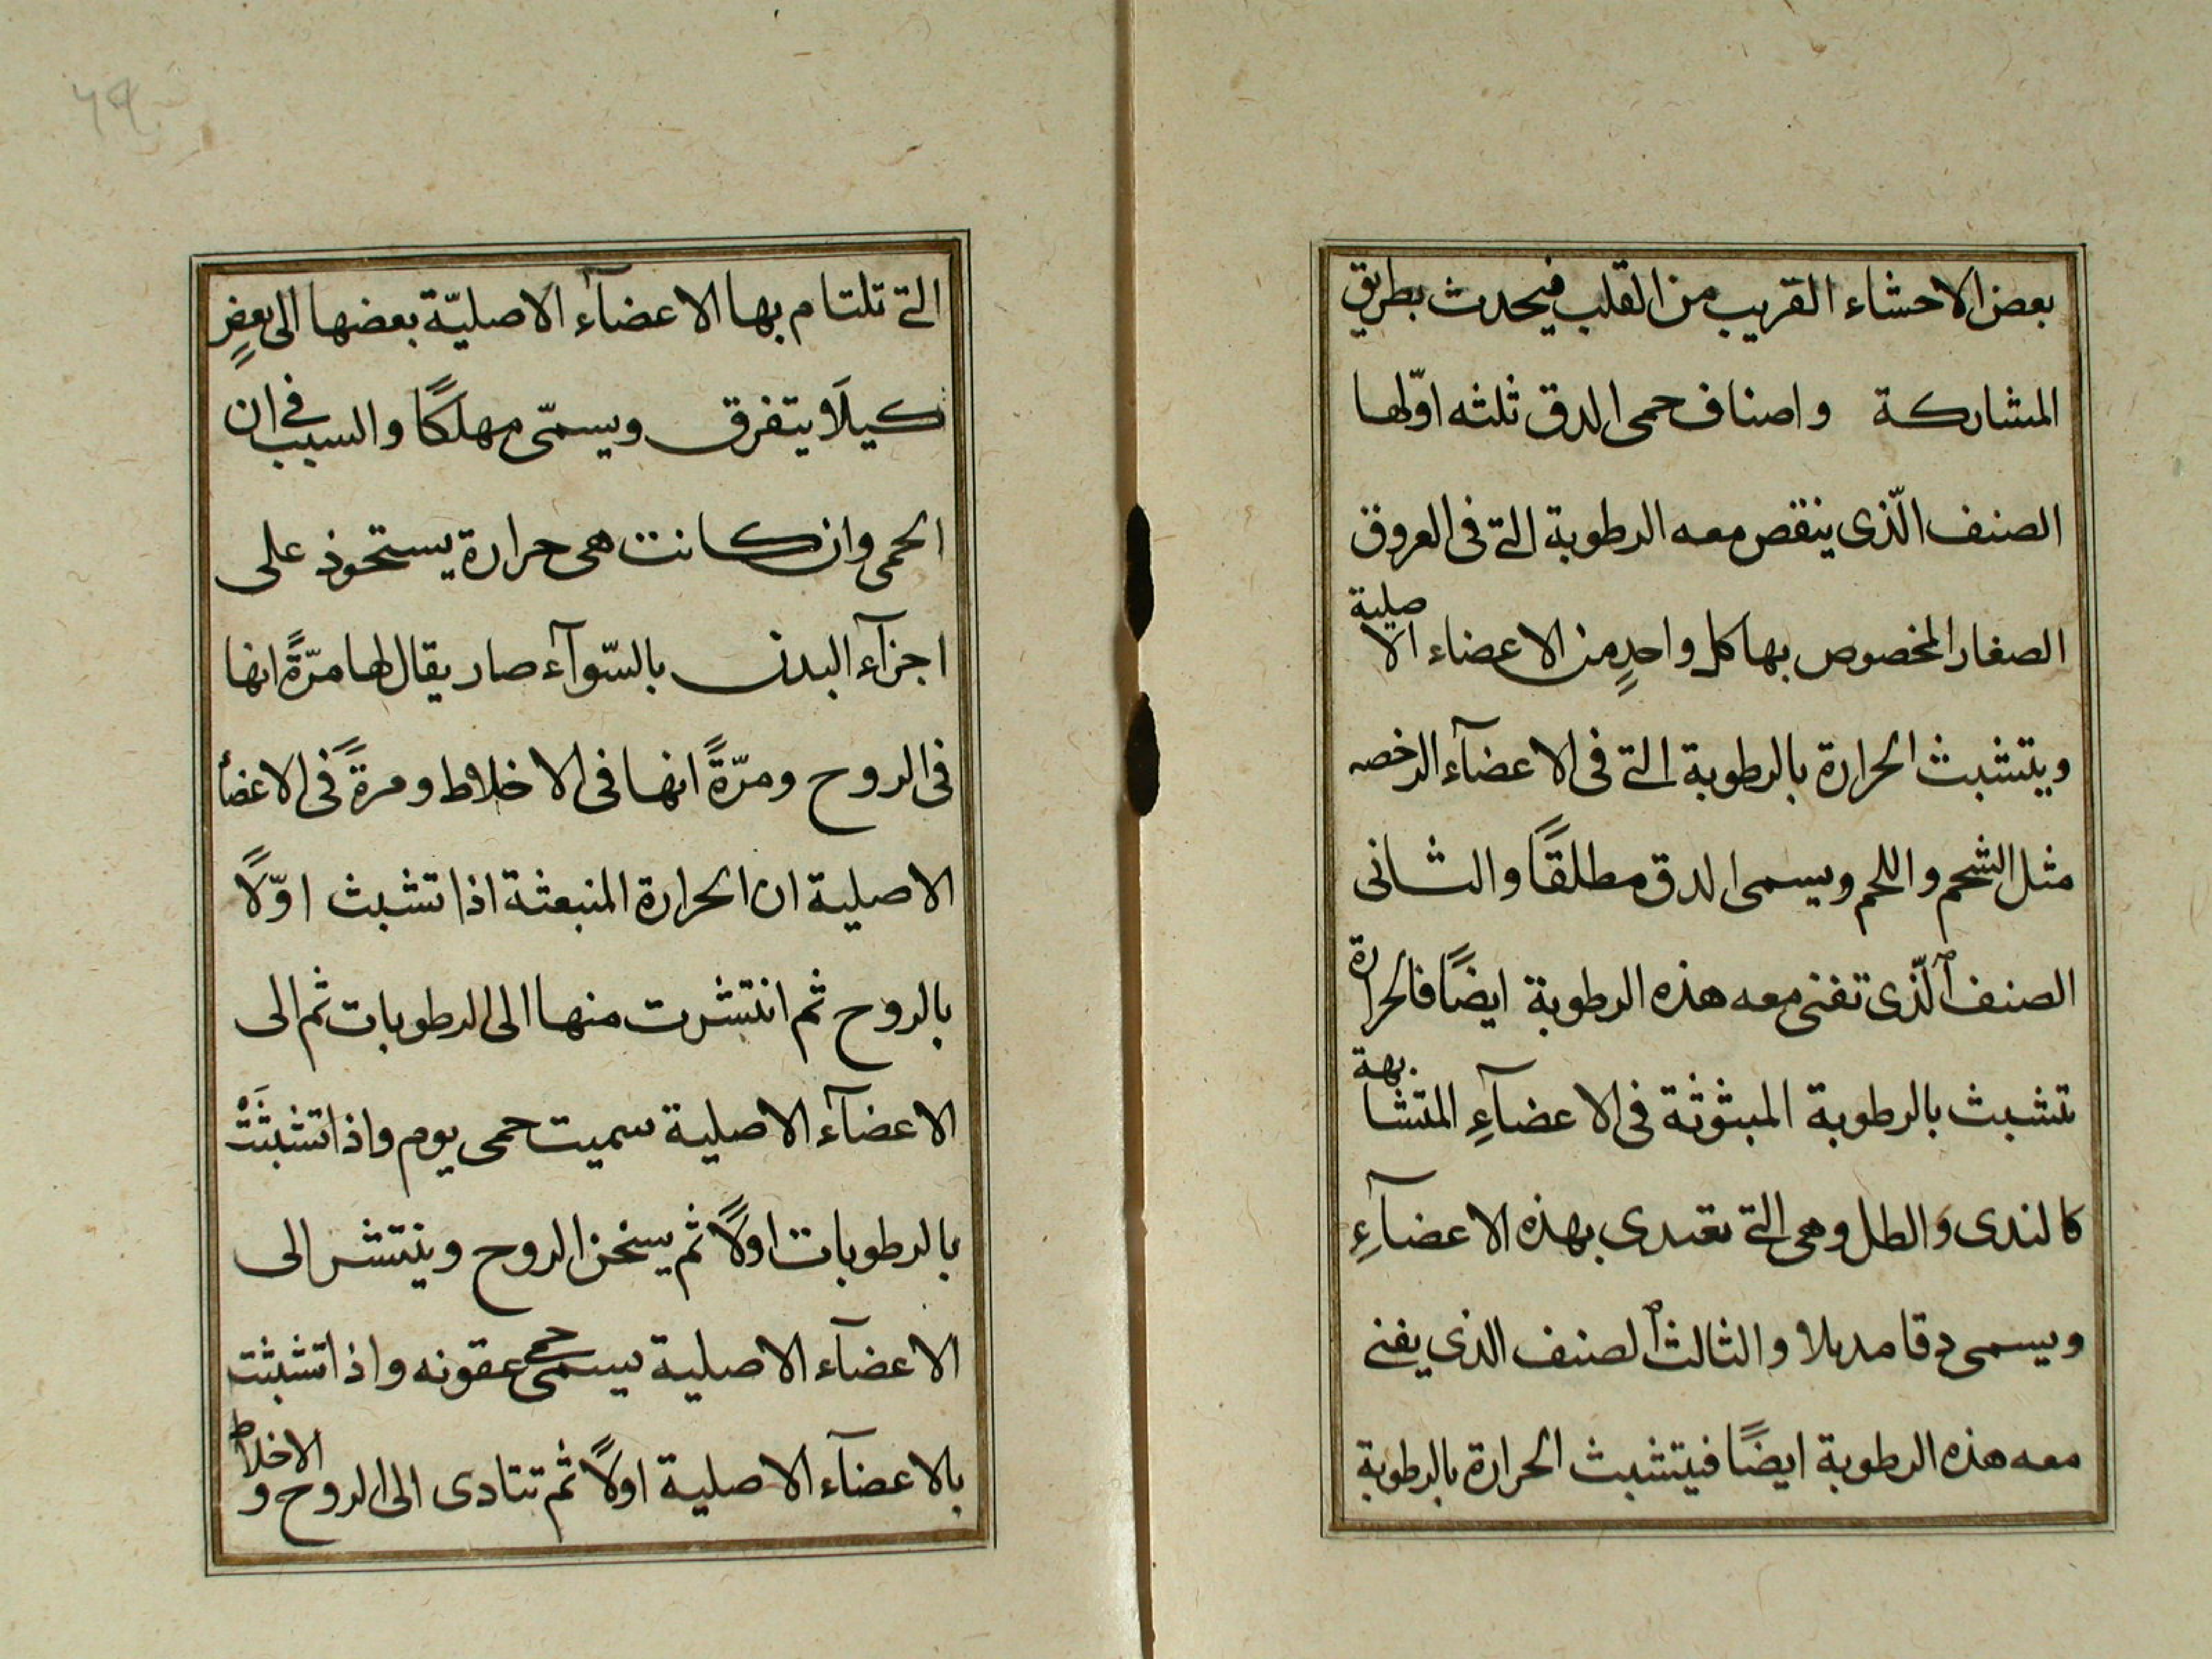 بعض الاحشاء القريب من القلب فيحدث بطريق
المشاركة واصناف حمى الدق ثلثه اوّلها
الصنف الّذى ينقص معه الرطوبة التى فى العروق
الصغار المخصوص بها كل واحدٍ من الاعضاء الاصلية
ويتشبث الحرارة بالرطوبة التى فى الاعضآء الرخصه
مثل الشحم واللحم ويسمى الدق مطلقًا والثانى
الصنف الّذى تفنى معه هذه الرطوبة ايضًا فالحرارة
تتشبث بالرطوبة المبثوثة فى الاعضآءِ المتشابهة
كالندى والطل وهى التى تغتدى بهذه الاعضآءِ
ويسمى دقا مدبلا والثالث الصنف الذى يفنى
معه هذه الرطوبة ايضًا فيتشبث الحرارة بالرطوبة
التى تلتام بها الاعضآء الاصليّة بعضها الى بعضٍ
كيلَا يتفرق ويسمّى مهلكًا والسبب فى ان
الحمى وان كانت هى حرارة يستحوذ على
اجزآء البدن بالسّوآء صار يقال لها مرّةً انها
فى الروح ومرّةً انها فى الاخلاط ومرةً فى الاعضآء
الاصلية ان الحرارة المنبعثة اذا تشبث اوّلًا
بالروح ثم انتشرت منها الى الرطوبات ثم الى
الاعضآء الاصلية سميت حمى يوم واذا تشبثَتْ
بالرطوبات اولًا ثم يسخن الروح وينتشر الى
الاعضآء الاصلية يسمى حمى عفونه واذا تشبثت
بالاعضآء الاصلية اولًا ثم تتادى الى الروح و الاخلاط
٦٩